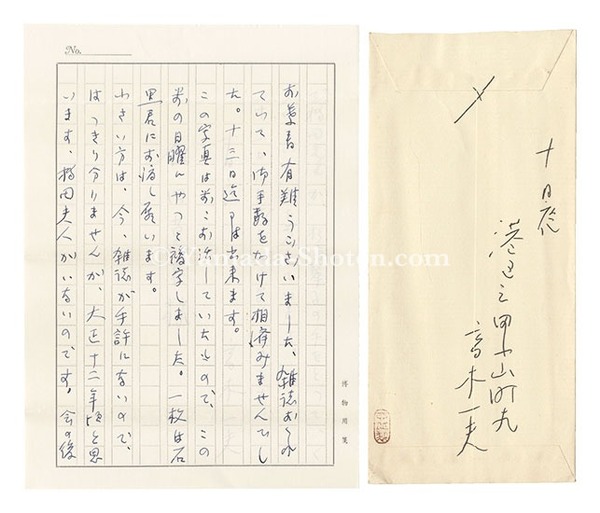 No.
お葉書有難うございました、雑誌おくれ
ていて、御手数をかけて相済みませんでし
た。十三日迄には出来ます。
この写真は前にお話していたもので、この
前の日曜にやっと複写しました。一枚は石
黒君にお渡し願います。
小さい方は、今、雑誌が手許にないので、
はっきり分りませんが、大正十二年頃と思
います。田夫人がいないのです。会の後
博物用箋
十日夜
港区三田小山町九
高木一夫
©YamadaShoten.com